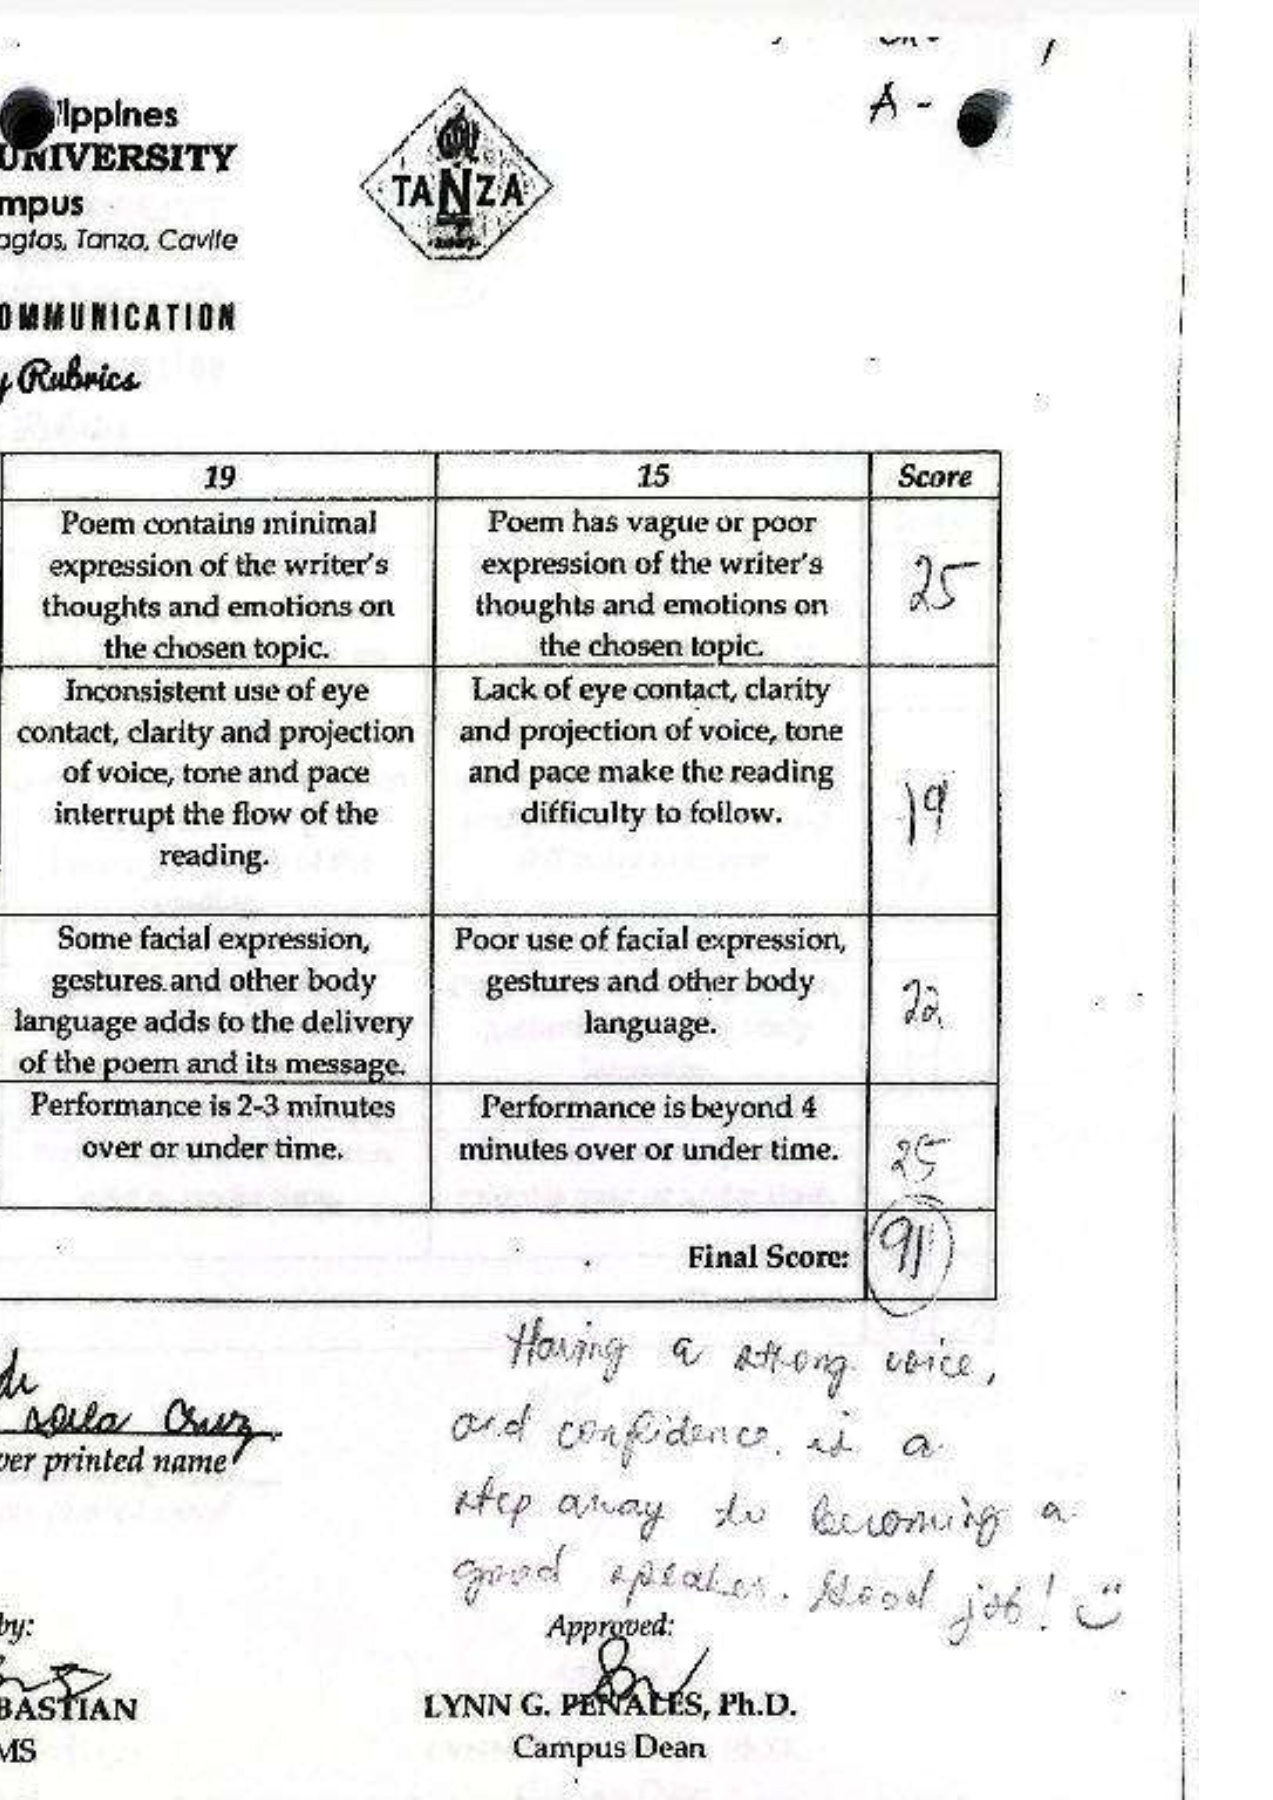 A -
ilippines
UNIVERSITY
mpus
agtas, Tanza, Cavite
TANZA
OMMUNICATION
y Rubrics
19 15 Score
Poem contains minimal
expression of the writer's
thoughts and emotions on
the chosen topic.
Poem has vague or poor
expression of the writer's
thoughts and emotions on
the chosen topic.
25
Inconsistent use of eye
contact, clarity and projection
of voice, tone and pace
interrupt the flow of the
reading.
Lack of eye contact, clarity
and projection of voice, tone
and pace make the reading
difficulty to follow.
19
Some facial expression,
gestures and other body
language adds to the delivery
of the poem and its message.
Poor use of facial expression,
gestures and other body
language.
22
Performance is 2-3 minutes
over or under time.
Performance is beyond 4
minutes over or under time.
25
Final Score: 91
Having a strong voice,
and confidence is a
step away to becoming a
good speaker. Good job!
Cruz
ver printed name
by:
BASTIAN
MS
Approved:
LYNN G. PENALES, Ph.D.
Campus Dean